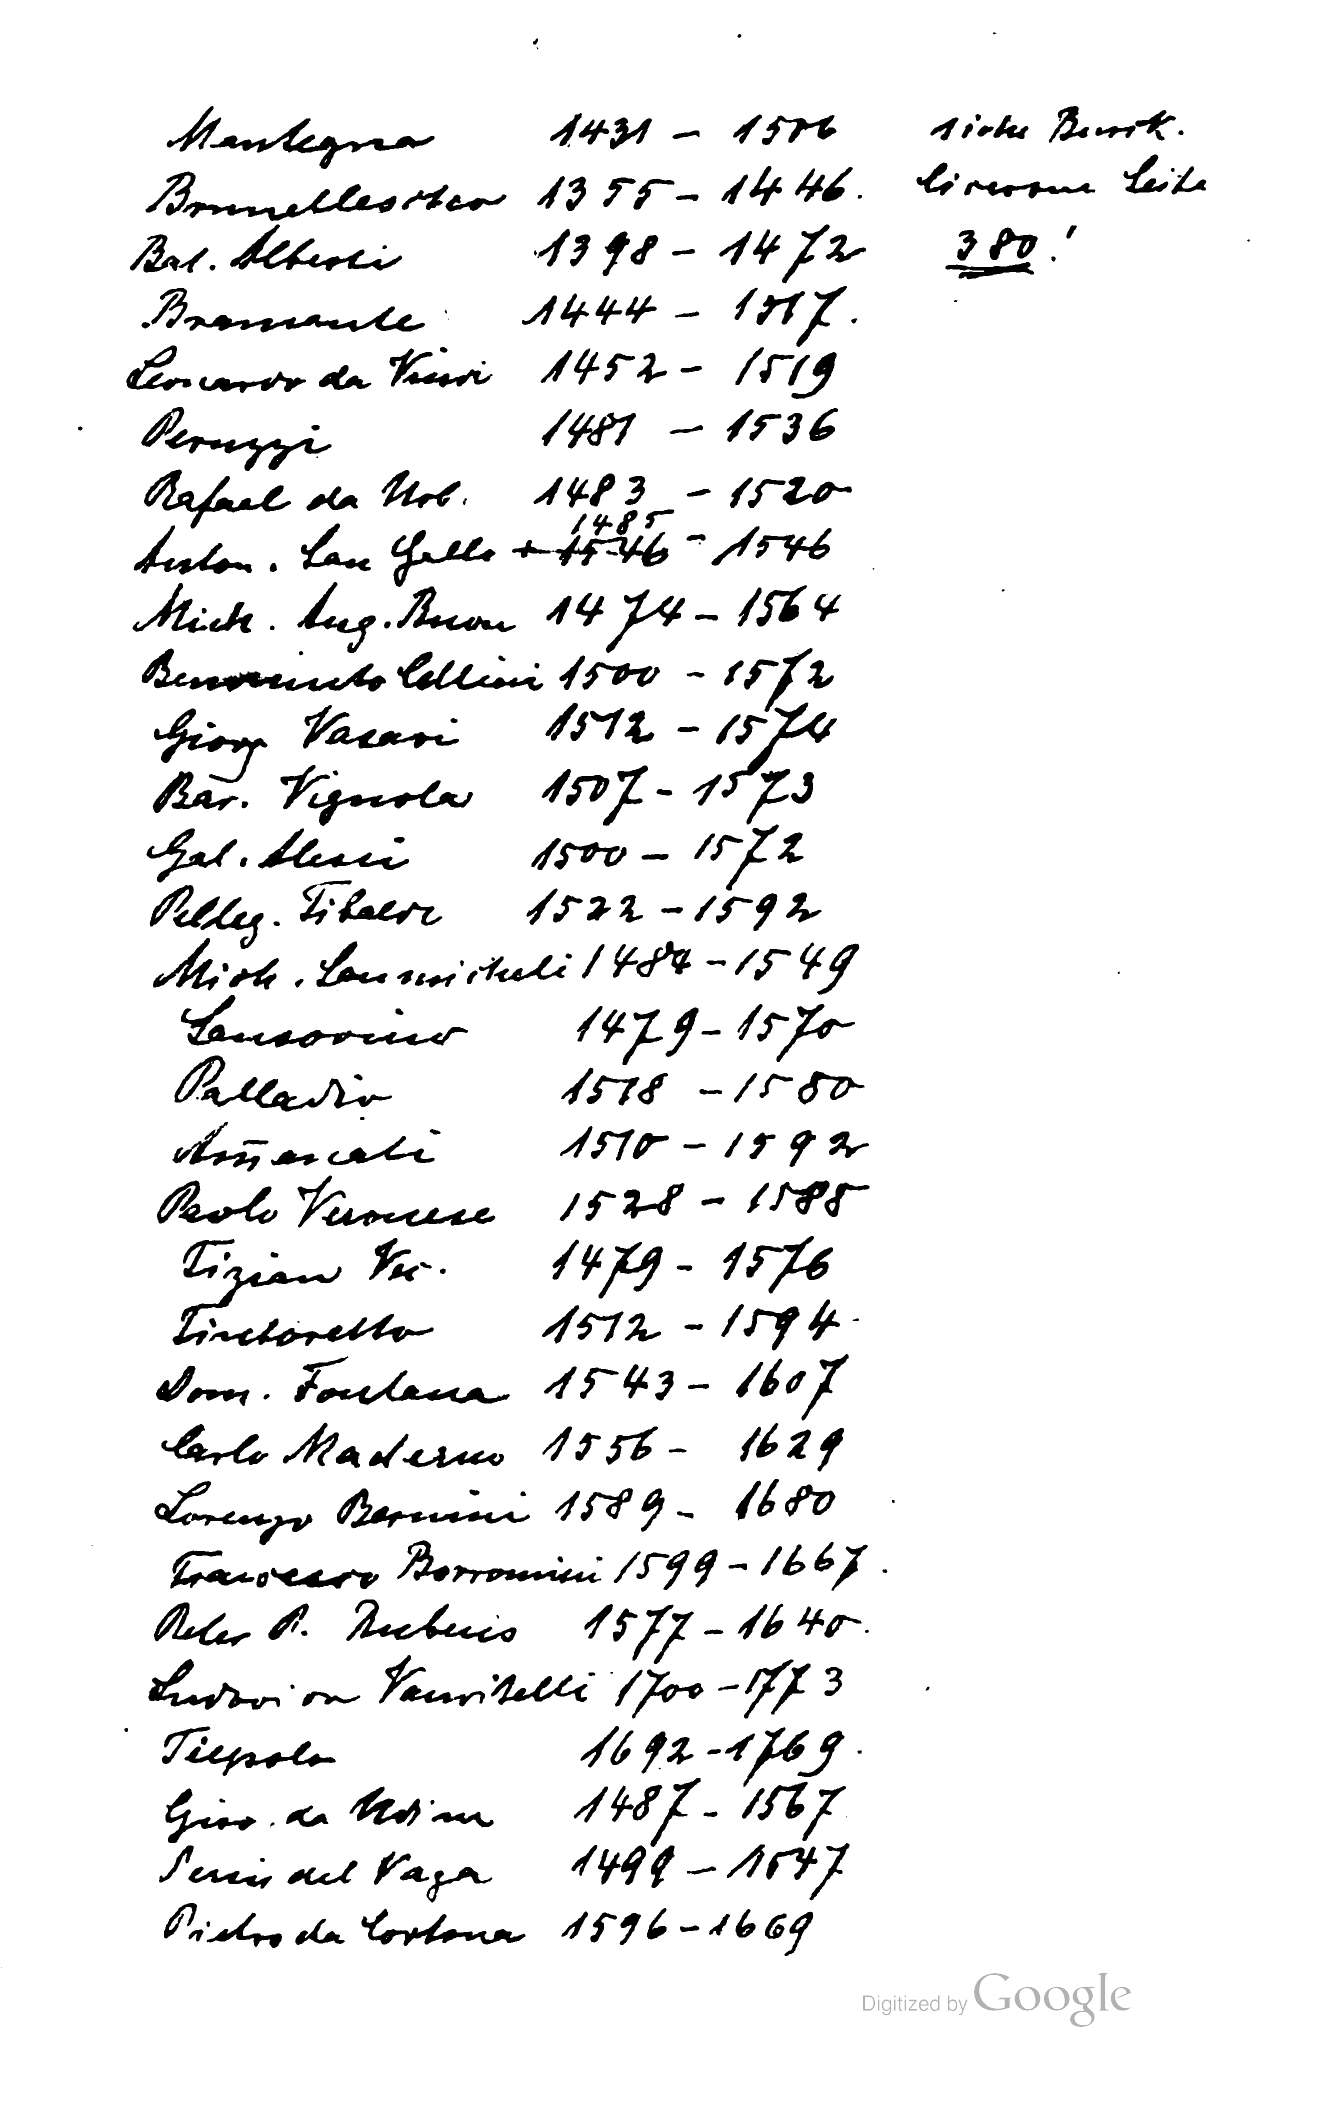 Mantegna 1431 – 1506 siehe Burck.
Brunellescheo 1355 – 1446. Cicerone Seite
Bat. Alberti 1398 – 1472 380!
Bramante 1444 – 1517.
Leonardo da Vinci 1452 – 1519
Peruzzi 1481 – 1536
Rafael da Urb. 1483 – 1520
1485
Anton. San Gallo + 1546 – 1546
Mich. Ang. Buon 1474 – 1564
Benvenuto Cellini 1500 – 1572
Giorg Vasari 1512 – 1574
Bar. Vignola 1507 – 1573
Gal. Alessi 1500 – 1572
Pelleg. Tibaldi 1522 – 1592
Mich. Sanmicheli 1484 – 1549
Sansovino 1479 – 1570
Palladio 1518 – 1580
Am̄anati 1510 – 1592
Paolo Veronese 1528 – 1588
Tizian Vec. 1479 – 1576
Tintoretto 1512 – 1594
Dom. Fontana 1543 – 1607
Carlo Maderno 1556 – 1629
Lorenzo Bernini 1589 – 1680
Francesco Borromini 1599 – 1667.
Peter P. Rubens 1577 – 1640.
Ludovico Vanvitelli 1700 – 1773
Tiepolo 1692 – 1769.
Giov. da Udine 1487 – 1567
Perin del Vaga 1499 – 1547
Pietro da Cortona 1596 – 1669
Digitized by Google